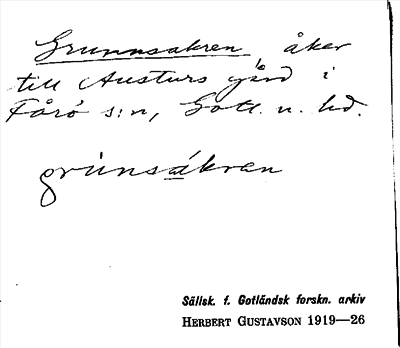 Grunnsakren, åker
till Austurs gård i
Fårö s:n, Gotl. n. hd.
grùnsákran
Sällsk. f. Gotländsk forskn. arkiv
HERBERT GUSTAVSON 1919—26